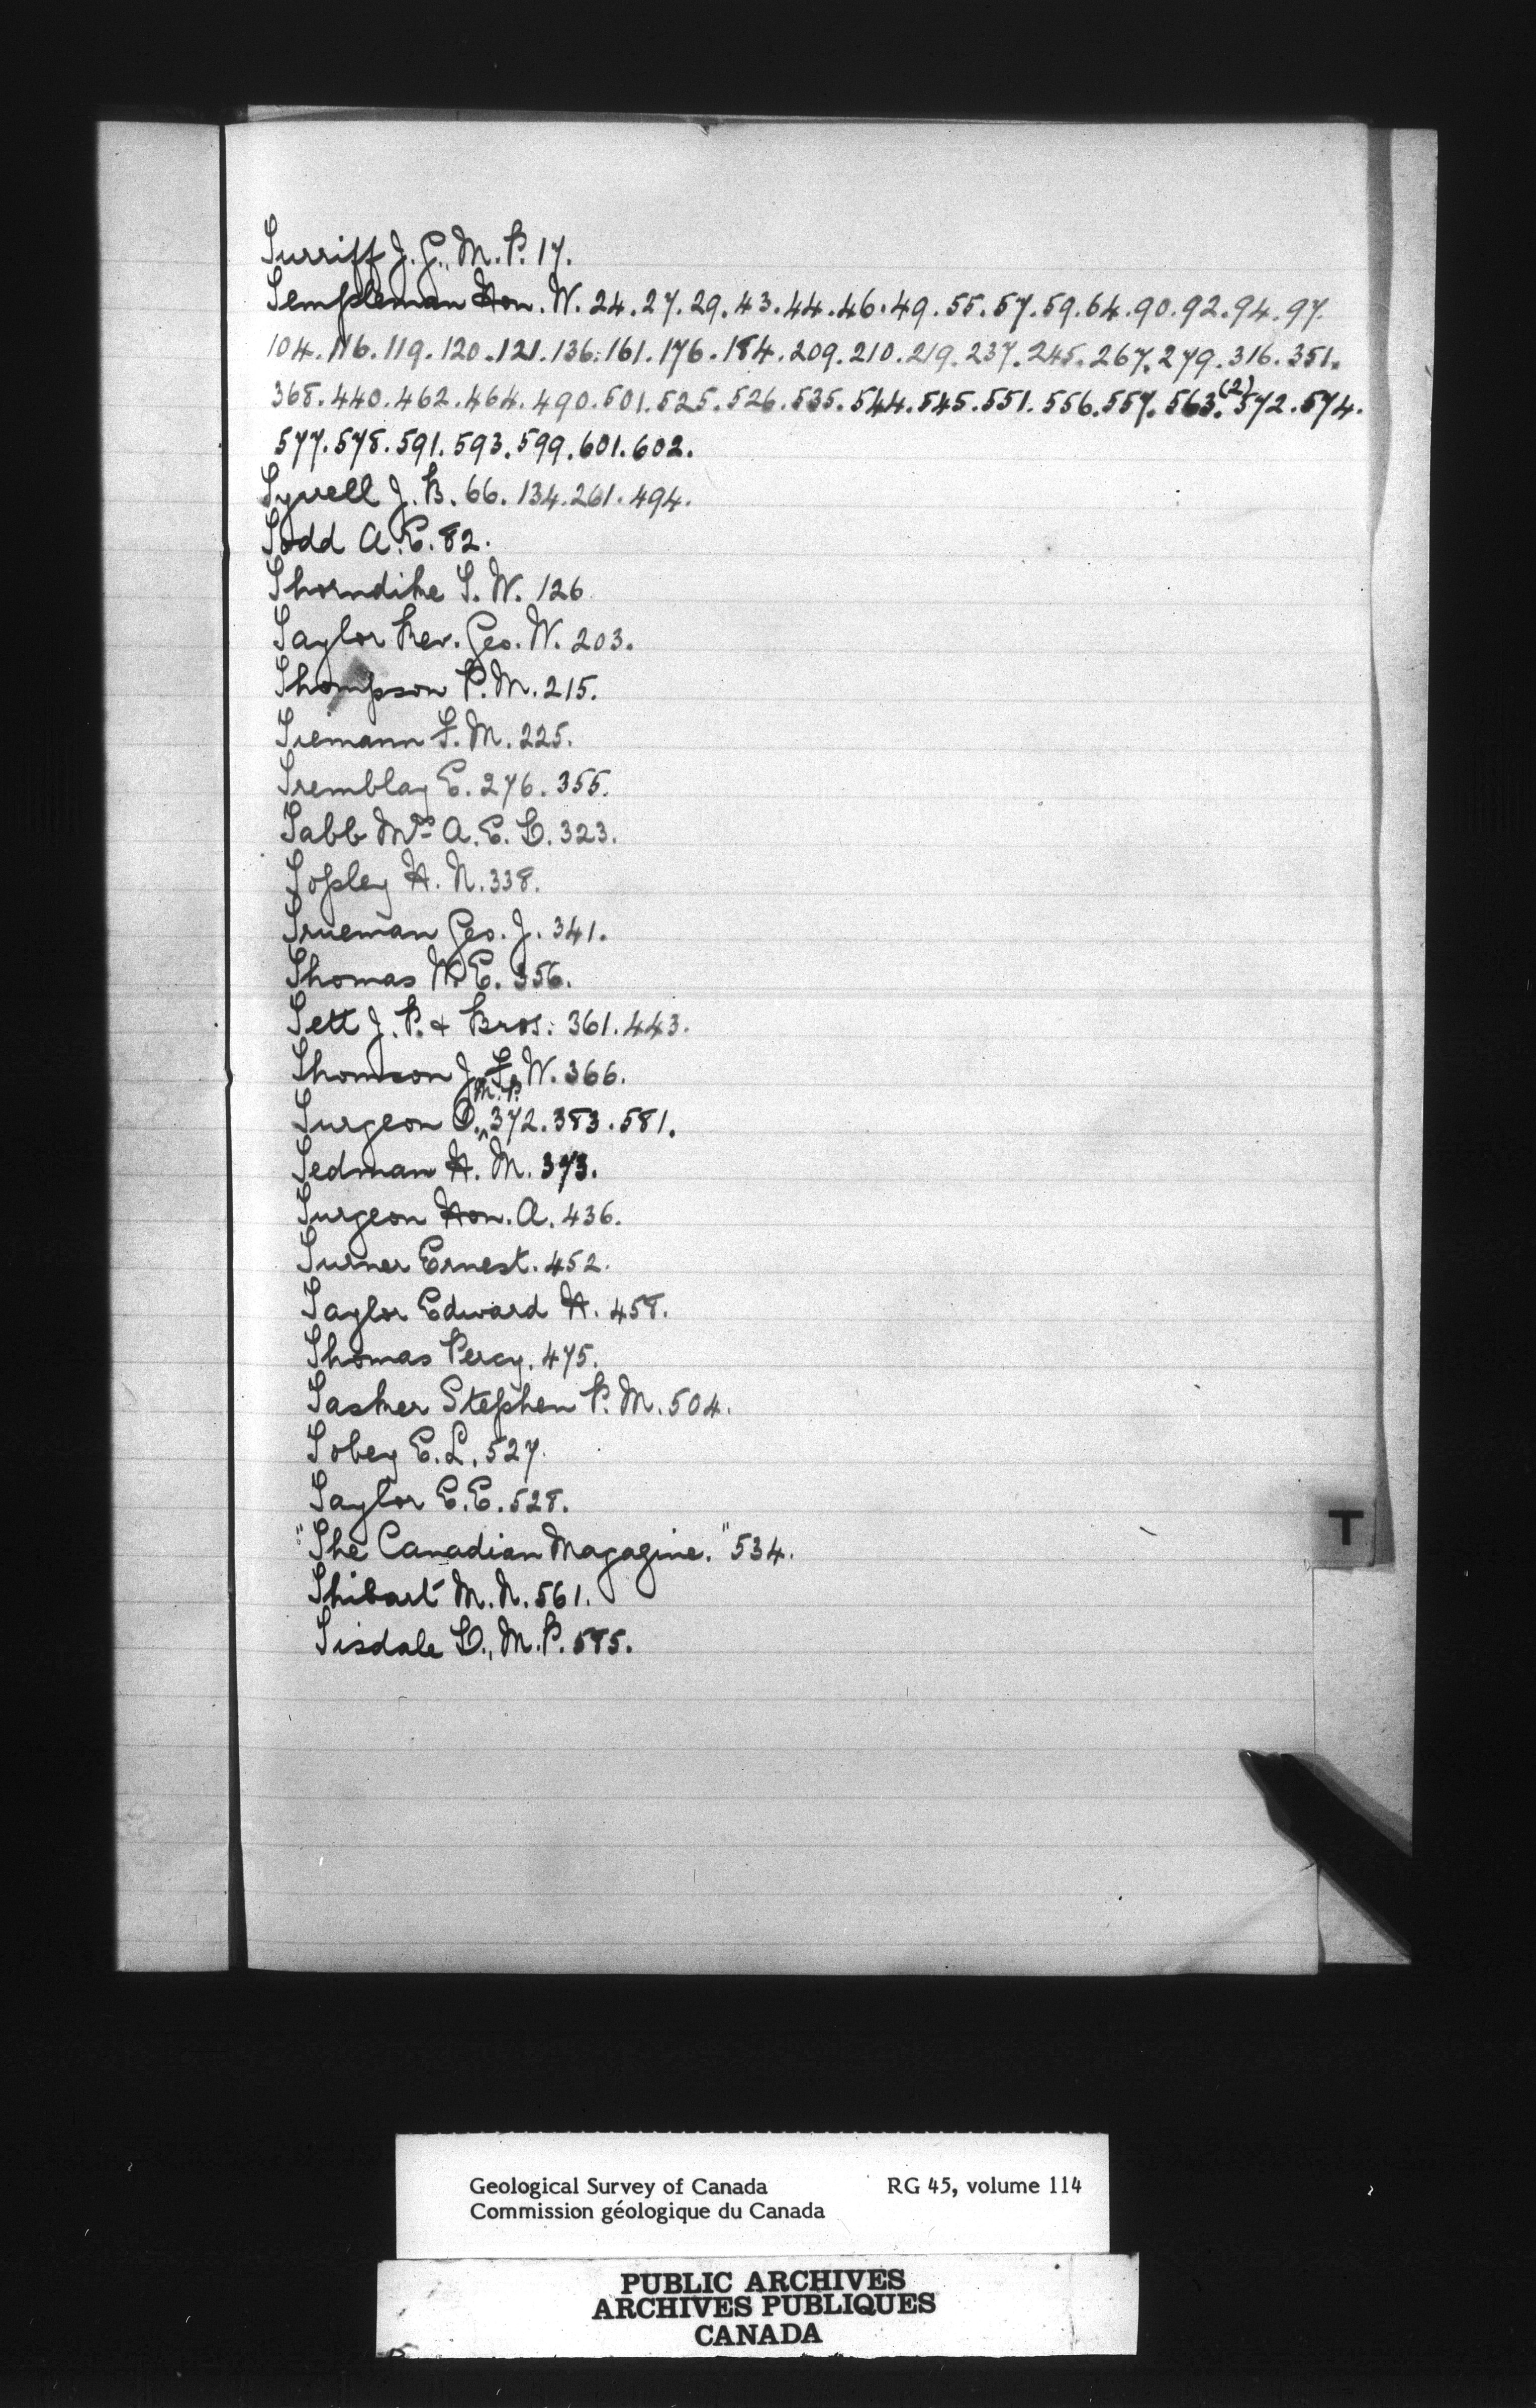 Turriff J. G., M. P. 17.
Templeman Hon. W. 24. 27. 29. 43. 44. 46. 49. 55. 57. 59. 64. 90. 92. 94. 97.
104. 116. 119. 120. 121. 136. 161. 176. 184. 209. 210. 219. 237. 245. 267. 279. 316. 351.
368. 440. 462. 464. 490. 501. 525. 526. 535. 544. 545. 551. 556. 557. 563.(2) 572. 574.
577. 578. 591. 593. 599. 601. 602.
Tyrell J. B. 66. 134. 261. 494.
Todd A. E. 82.
Thorndike T. W. 126
Taylor Rev. Geo. W. 203.
Thompson P. M. 215.
Tiemann F. M. 225.
Tremblay E. 276. 355.
Tabb Mrs A. E. D. 323.
Topley H. N. 338.
Trueman Geo. J. 341.
Thomas W. E. 356.
Tett J. P. & Bros. 361. 443.
Thomson J. F. W. 366.
Turgeon O., M.P. 372. 383. 581.
Tedman H. M. 373.
Turgeon Hon. A. 436.
Turner Ernest. 452.
Taylor Edward H. 458.
Thomas Percy. 475.
Tasker Stephen P. M. 504.
Tobey E. L. 527.
Taylor E. E. 528.
"The Canadian Magazine." 534.
Thibart M. N. 561.
Tisdale D., M. P. 585.
T
Geological Survey of Canada RG 45, volume 114
Commission géologique du Canada
PUBLIC ARCHIVES
ARCHIVES PUBLIQUES
CANADA